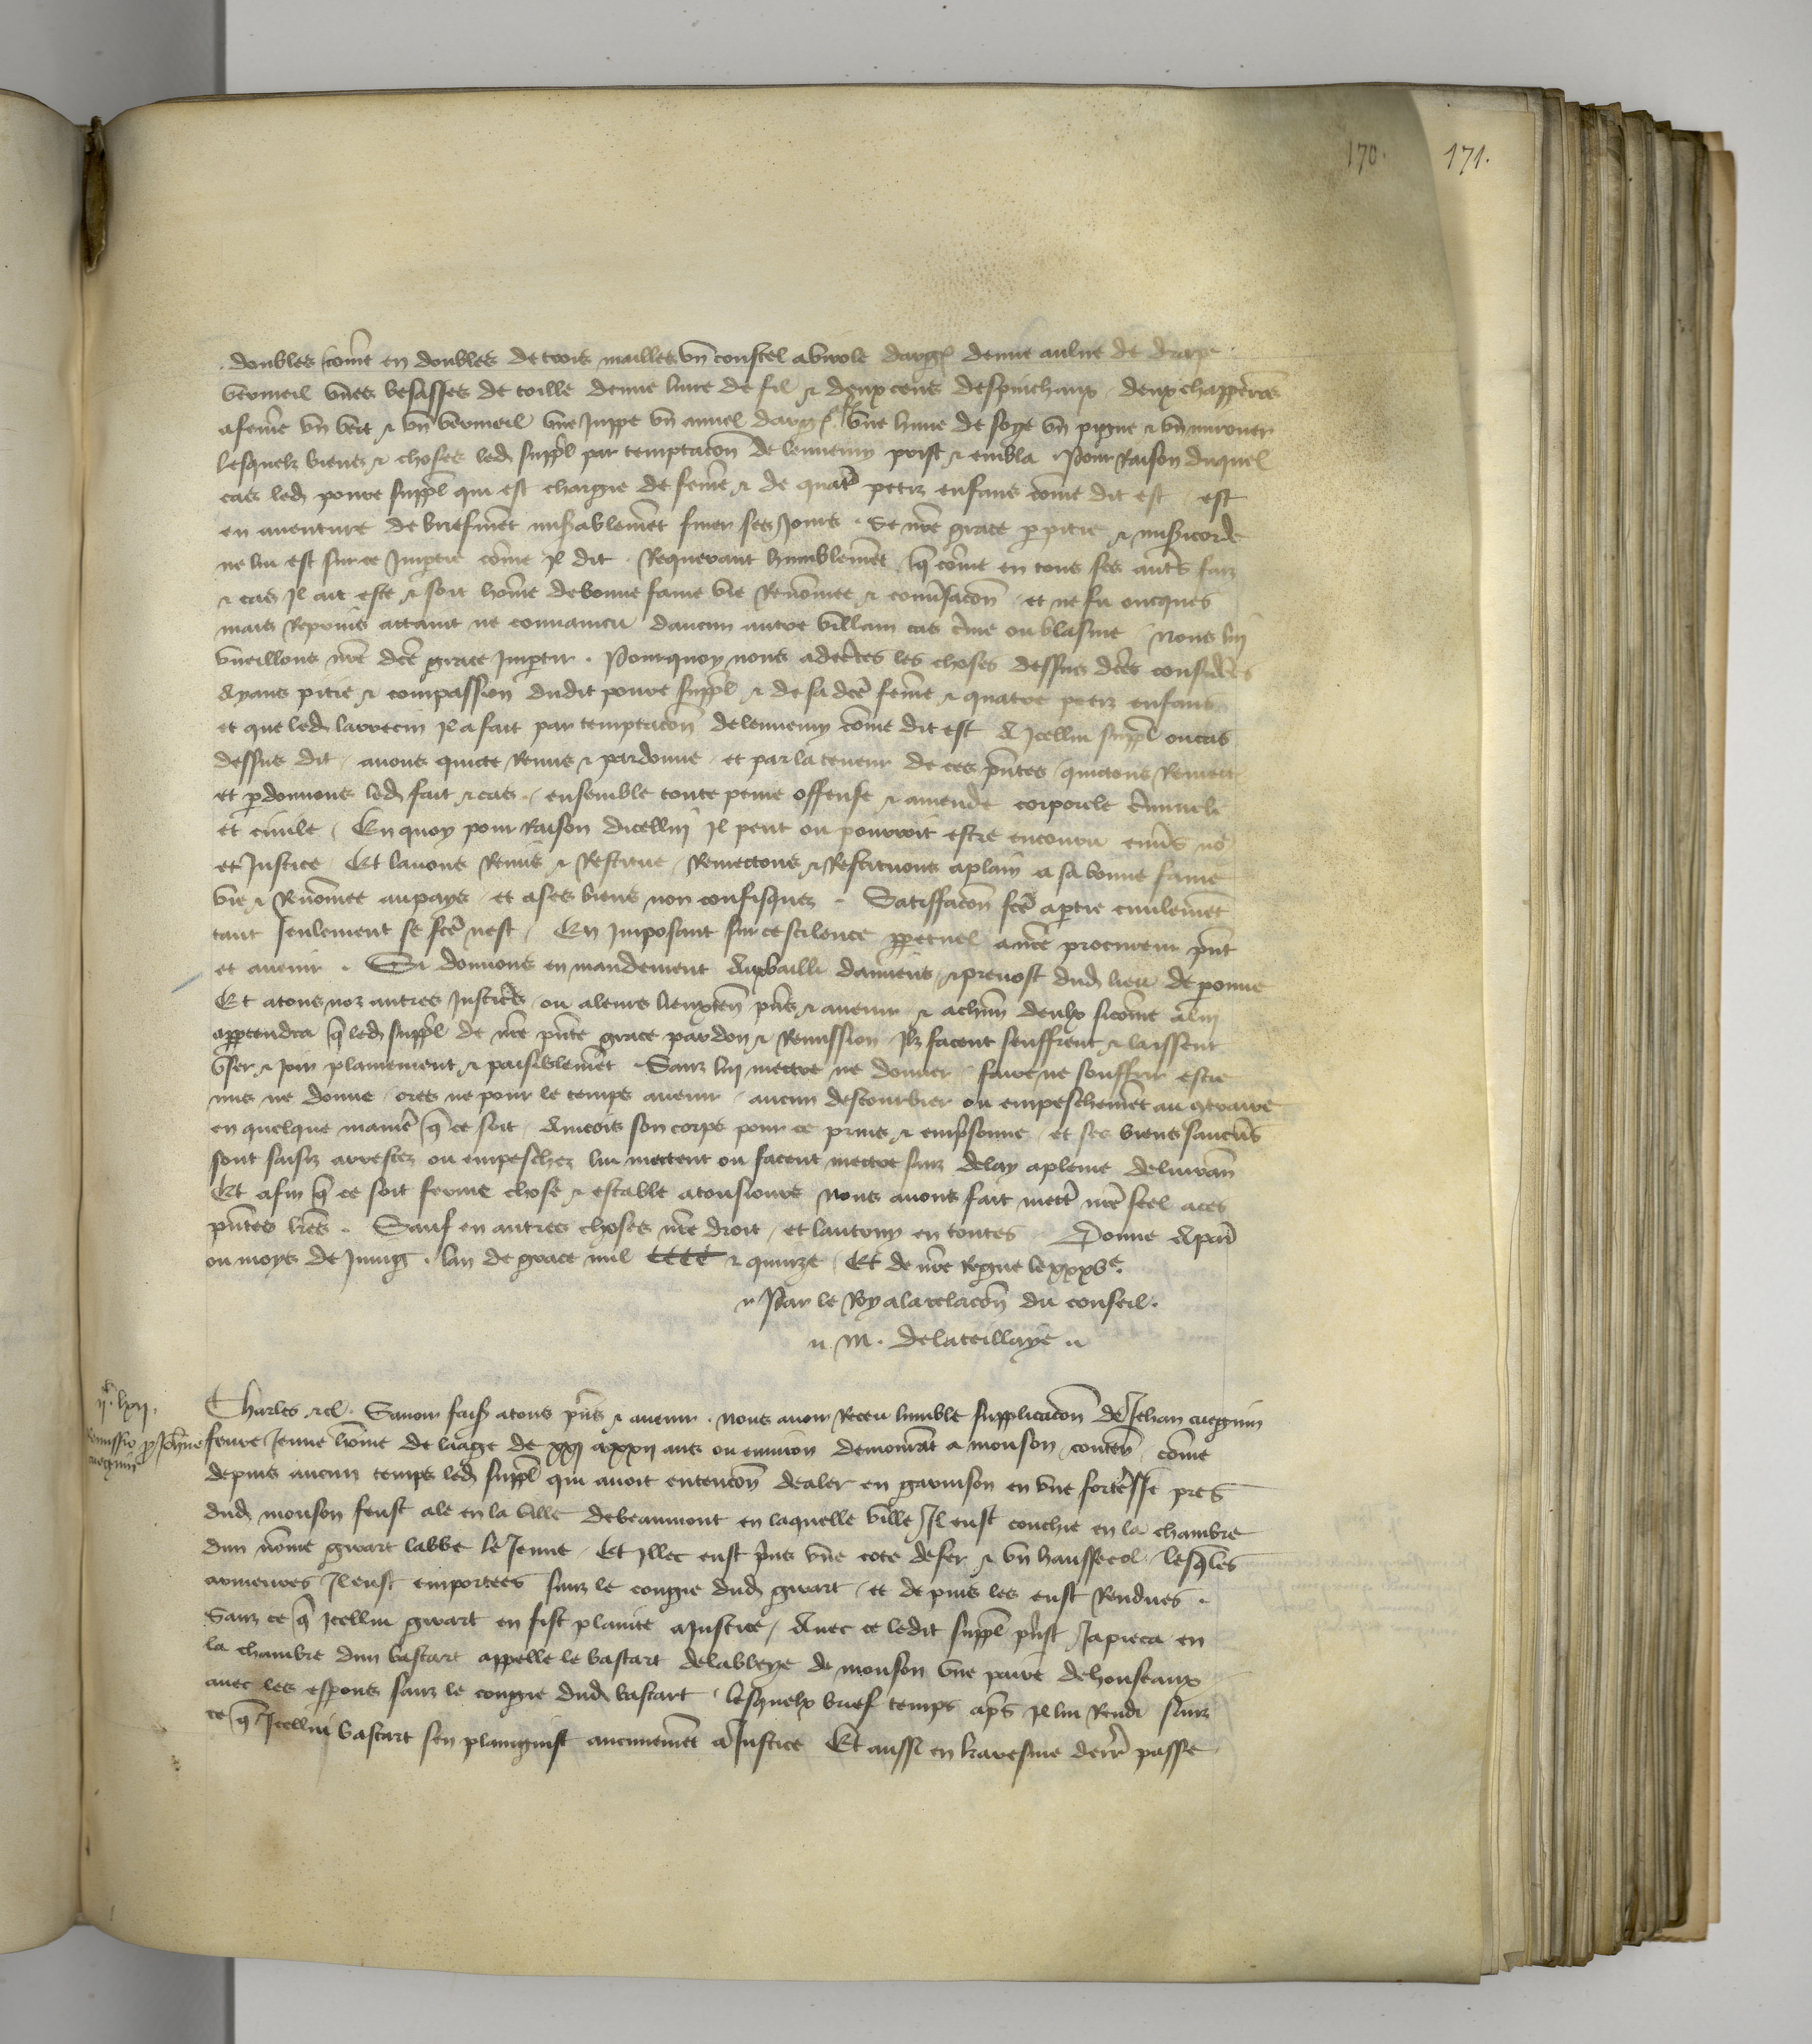 170. 171.
doubles come en doubles de trois mailles vn coustel a virole dargt demie aulne de drap
vermeil vnes besasses de toille demie liure de fil & deux cens despinchaux deux chapperons
a feme vn vert & vn vermeil vne juppe vn annel dargt vne lime de soye vn pigne & vn mirouer
lesquelz biens & choses led suppl par temptacon de lennemy prist & embla . Pour raison duquel
cas led poure suppl qui est chargie de feme & de quatre petiz enfans come dit est / est
en auenture de briefment miserablement finer ses jours . Se nre grace pitie & misericorde
ne lui est sur ce impartie come il dit . Requerant humblement q come en tous ses autres faiz
& cas il ait este & soit home de bonne fame vie renomee & conuersacon / et ne fu oncques
mais reprins attaint ne conuaincu daucun autre villain cas crime ou blasme Nous lui
vueillons nre dce grace impartir . Pourquoy nous adcertes les choses dessus dces considerees
Ayans pitie & compassion dudit poure suppl & de sa dce feme & quatre petiz enfans
et que led larrecin il a fait par temptacon de lennemy come dit est A icellui suppl ou cas
dessus dit / auons quicte remis & pardonne / et par la teneur de ces pntes quictons remett
et pdonnons led fait & cas / ensemble toute peine offense & amende corporele criminele
et ciuile / En quoy pour raison dicelluy il peut ou pourroit estre encouru enuers no
et justice / Et lauons remis & restitue / remectons & restituons a plain a sa bonne fame
vie & renomee au pays / et a ses biens non confisquez . Satisfacon fce a ptie ciuilement
tant seulement se fce nest / En imposant sur ce scilence ppetuel a nre procureur pnt
et auenir . Si donnons en mandement au bailli damiens & preuost dud lieu de peronne
Et a tous noz autres justiciers ou a leurs lieuxten pns & auenir & a chun deulx sicome a lui
appartendra q led suppl de nre pnte grace pardon & remission ilz facent seuffrent & laissent
vser & joir plainement & paisiblement . Sanz lui mectre ne donner / faire ne souffrir estre
mis ne donne / ores ne pour le temps auenir / aucun destourbier ou empeschement au contraire
en quelque maniere q ce soit . Aincois son corps pour ce prins & emprisonne / et ses biens saucuns
sont saisiz arrestez ou empeschez lui mectent ou facent mectre sanz delay a pleine deliurance
Et afin q ce soit ferme chose & estable a tousiours nous auons fait mettre nre seel a ces
pntes lres . Sauf en autres choses nre droit / et lautruy en toutes Donne a paris
ou moys de juing . lan de grace mil cccc & quinze / Et de nre regne le xxxve.
Par le Roy a la relacon du conseil .
M . delateillaye
iic lxii .
Remissio p Johne
Charles &c . Sauoir fais a tous pns & auenir . nous auoir receu lumble supplicacon de Jehan cuegnin
feure jeune home de leage de xxj a xxij ans ou enuiron demourant a mouson / conten / come
depuis aucun temps led suppl qui auoit entencon dealer en garnison en vne forteresse pres
dud mouson feust ale en la ville de beaumont en laquelle ville il eust couchie en la chambre
dun nome girart labbe le jeune / Et illec eust prins vne cote de fer & vn haussecol / lesqles
armeures il eust emportees sanz le congie dud girart / et depuis les eust rendues .
Sanz ce q icellui girart en fist plainte a justice / Auec ce ledit suppl prist ja pieca en
la chambre dun bastart appelle le bastart de labbeye de mouson vne paire de houseaux
auec les esperons sanz le congie dud bastart / lesquelx brief temps apres il lui rendi sanz
ce q icellui bastart sen plaingnist aucunement a justice Et aussi en karesme derr passe